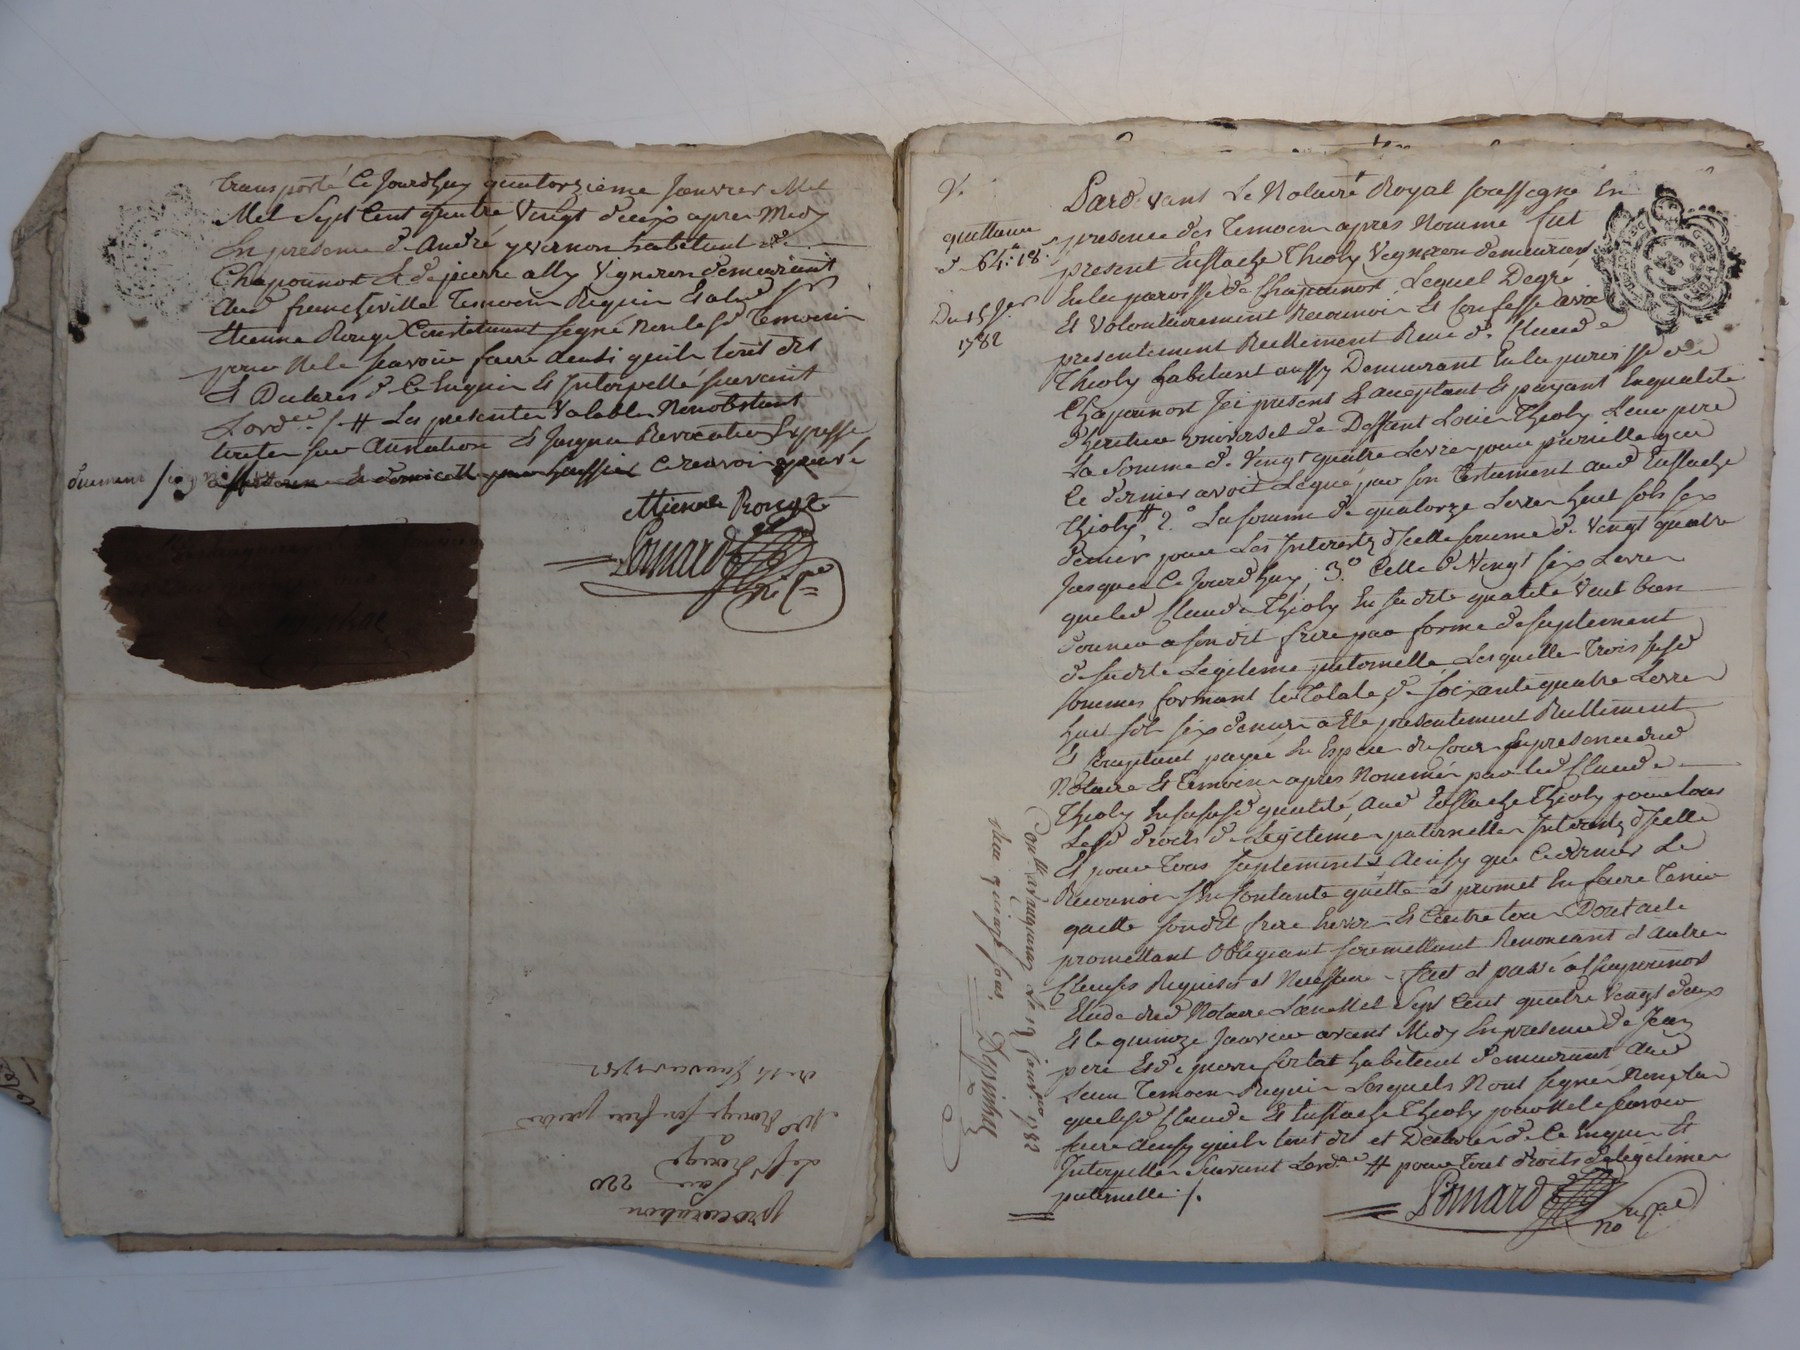 transporté Ce Jourdhuy quatorzieme Janvier Mil
Mil Sept Cent quatre Vingt deux apres Midy
En presence de André yvernon habitant de
Chaponost Et de pierre ally Vigneron demeurant
Aud francheville Temoins Requis Et aled
Etienne Rouge Constituant signé Non lesd Temoins
pour Ne le scavoir faire Ainsi quils Lont dit
Et Declarés de Ce Enquis Et Interpellé suivant
Lordce /. # Les presentes Valables Nonobstant
toutes sur Annation Et Jusqua Revocation Expresse
duement
Etienne Rouge
Ponard
No Re
procuration
220
Rouge
du 14 Janvier 1782
quittance
de 64: 18
Du 15 Jer
1782
Pardevant Le Notaire Royal soussigné En
presence des Temoins apres Nommé fut
present Eustache Thioly Vigneron demeurant
En la paroisse de Chaponost, Lequel De gré
Et Volontairement Reconnoit Et Confesse avoir
presentement Reellement Recu de Claude
Thioly habitant aussy Demeurant En la paroisse de
Chaponost Ici present Et acceptant Et payant En qualité
d'heritier universel de Deffunt Louis Thioly Leur pere
La Somme de Vingt quatre Livres pour pareille que
Ce dernier avoit Legué par son Testament aud Eustache
Thioly # 2.° La somme de quatorze Livres huit sols six
deniers pour Les Interests d'Icelle somme de Vingt quatre
Jusques Ce Jourdhuy; 3.° Celle de Vingt six Livres
que led Claude Thioly En sa dite qualité Veut bien
donner a son dit frere par forme de suplement
de sa dite Legitime paternelle, Lesquelles Trois susd
sommes formant La Totale de soixante quatre Livres
huit sols six deniers a Eté presentement Reellement
Et Comptant payée En Espece de Cour En presence dud
Notaire Et Temoins apres Nommés par led Claude
Thioly En sa susd qualité, Aud Eustache Thioly pour tous
Lesd droits de Legitimes paternelles Interests d'Icelle
Et pour Tous suplements Ainsy que Ce dernier Le
Reconnoit s'En Contante quitte et promet En faire Tenir
quitte son dit frere Envers Et Contre tous Dont acte
promettant Obligeant soumettant Renoncant d'Autres
Clauses Requises et Necessaires fait et passé a Chaponost
Etude dud Notaire Lan Mil Sept Cent quatre Vingt deux
Et le quinze Janvier avant Midy En presence de Jean
pere Et de pierre fortat habitant demeurant Aud
Lieu Temoins Requis Lesquels Nont signé Non plus
que lesd Claude Et Eustache Thioly pour Ne le scavoir
faire Ainsy quils Lont dit et Declarés de Ce Enquis Et
Interpellés suivant Lordce # pour Tout droits de legitimes
paternelle /.
Ponard
No Re
Conllé a Brignais Le 17 Janvier 1782
Recu quinze sous